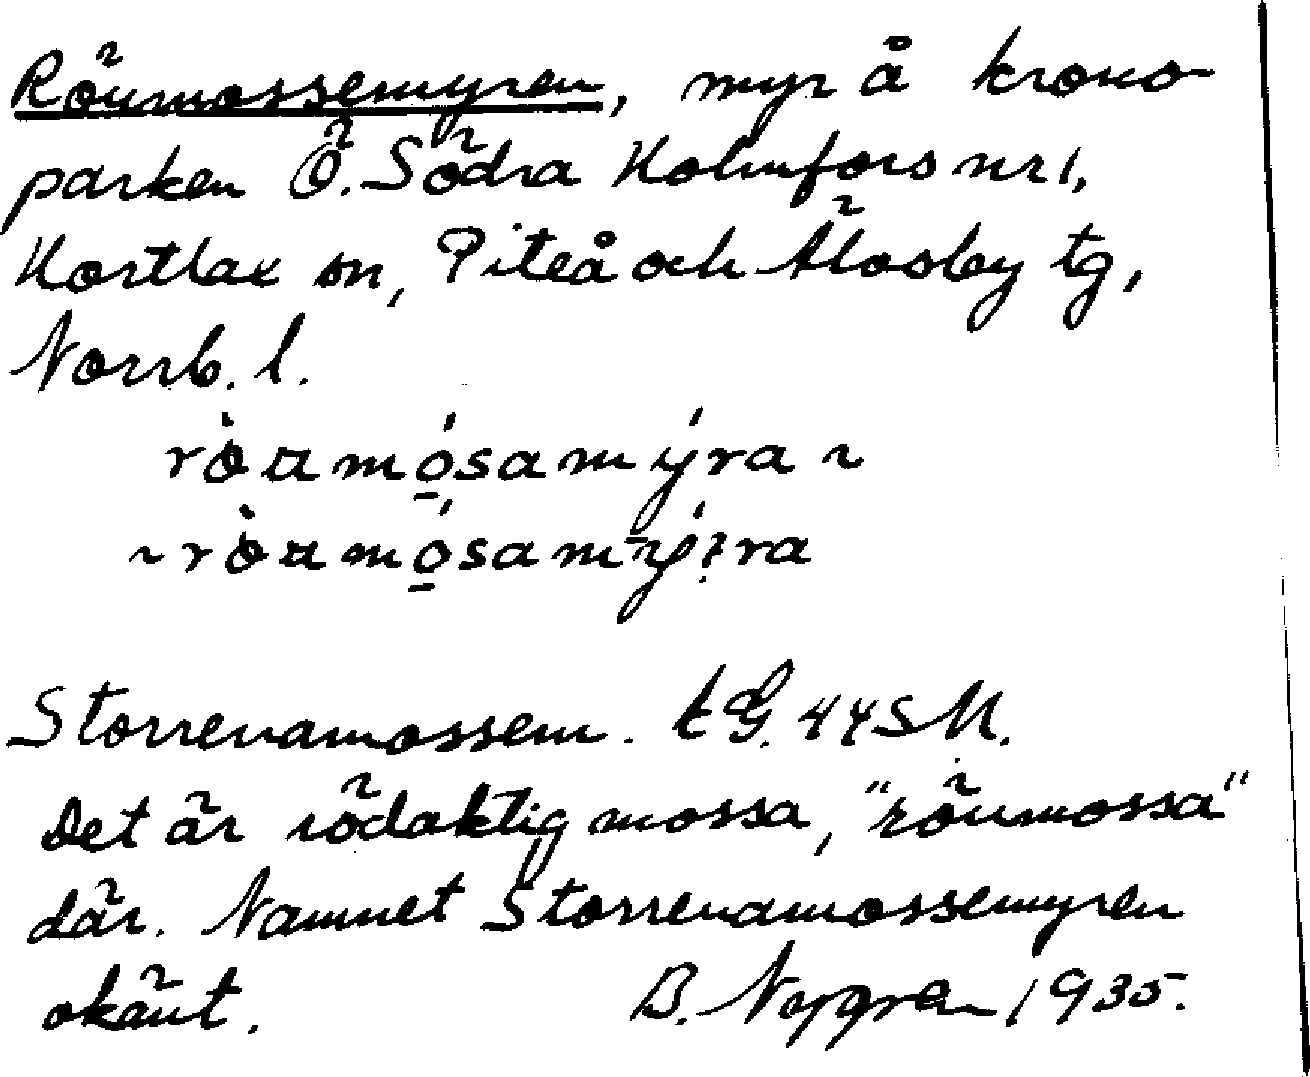 Röumossemyren, myr å krono-
parken Ö. Södra Holmfors nr 1,
Hortlax sn, Piteå och Älvsby tg,
Norrb. l.
ròumósamýra ~
~ ròumósamýra
Storrevamossen. tG. 44SM.
Det är rödaktig mossa, "röumossa"
där. Namnet Storrevamossemyren
okänt. B. Nygren 1935.